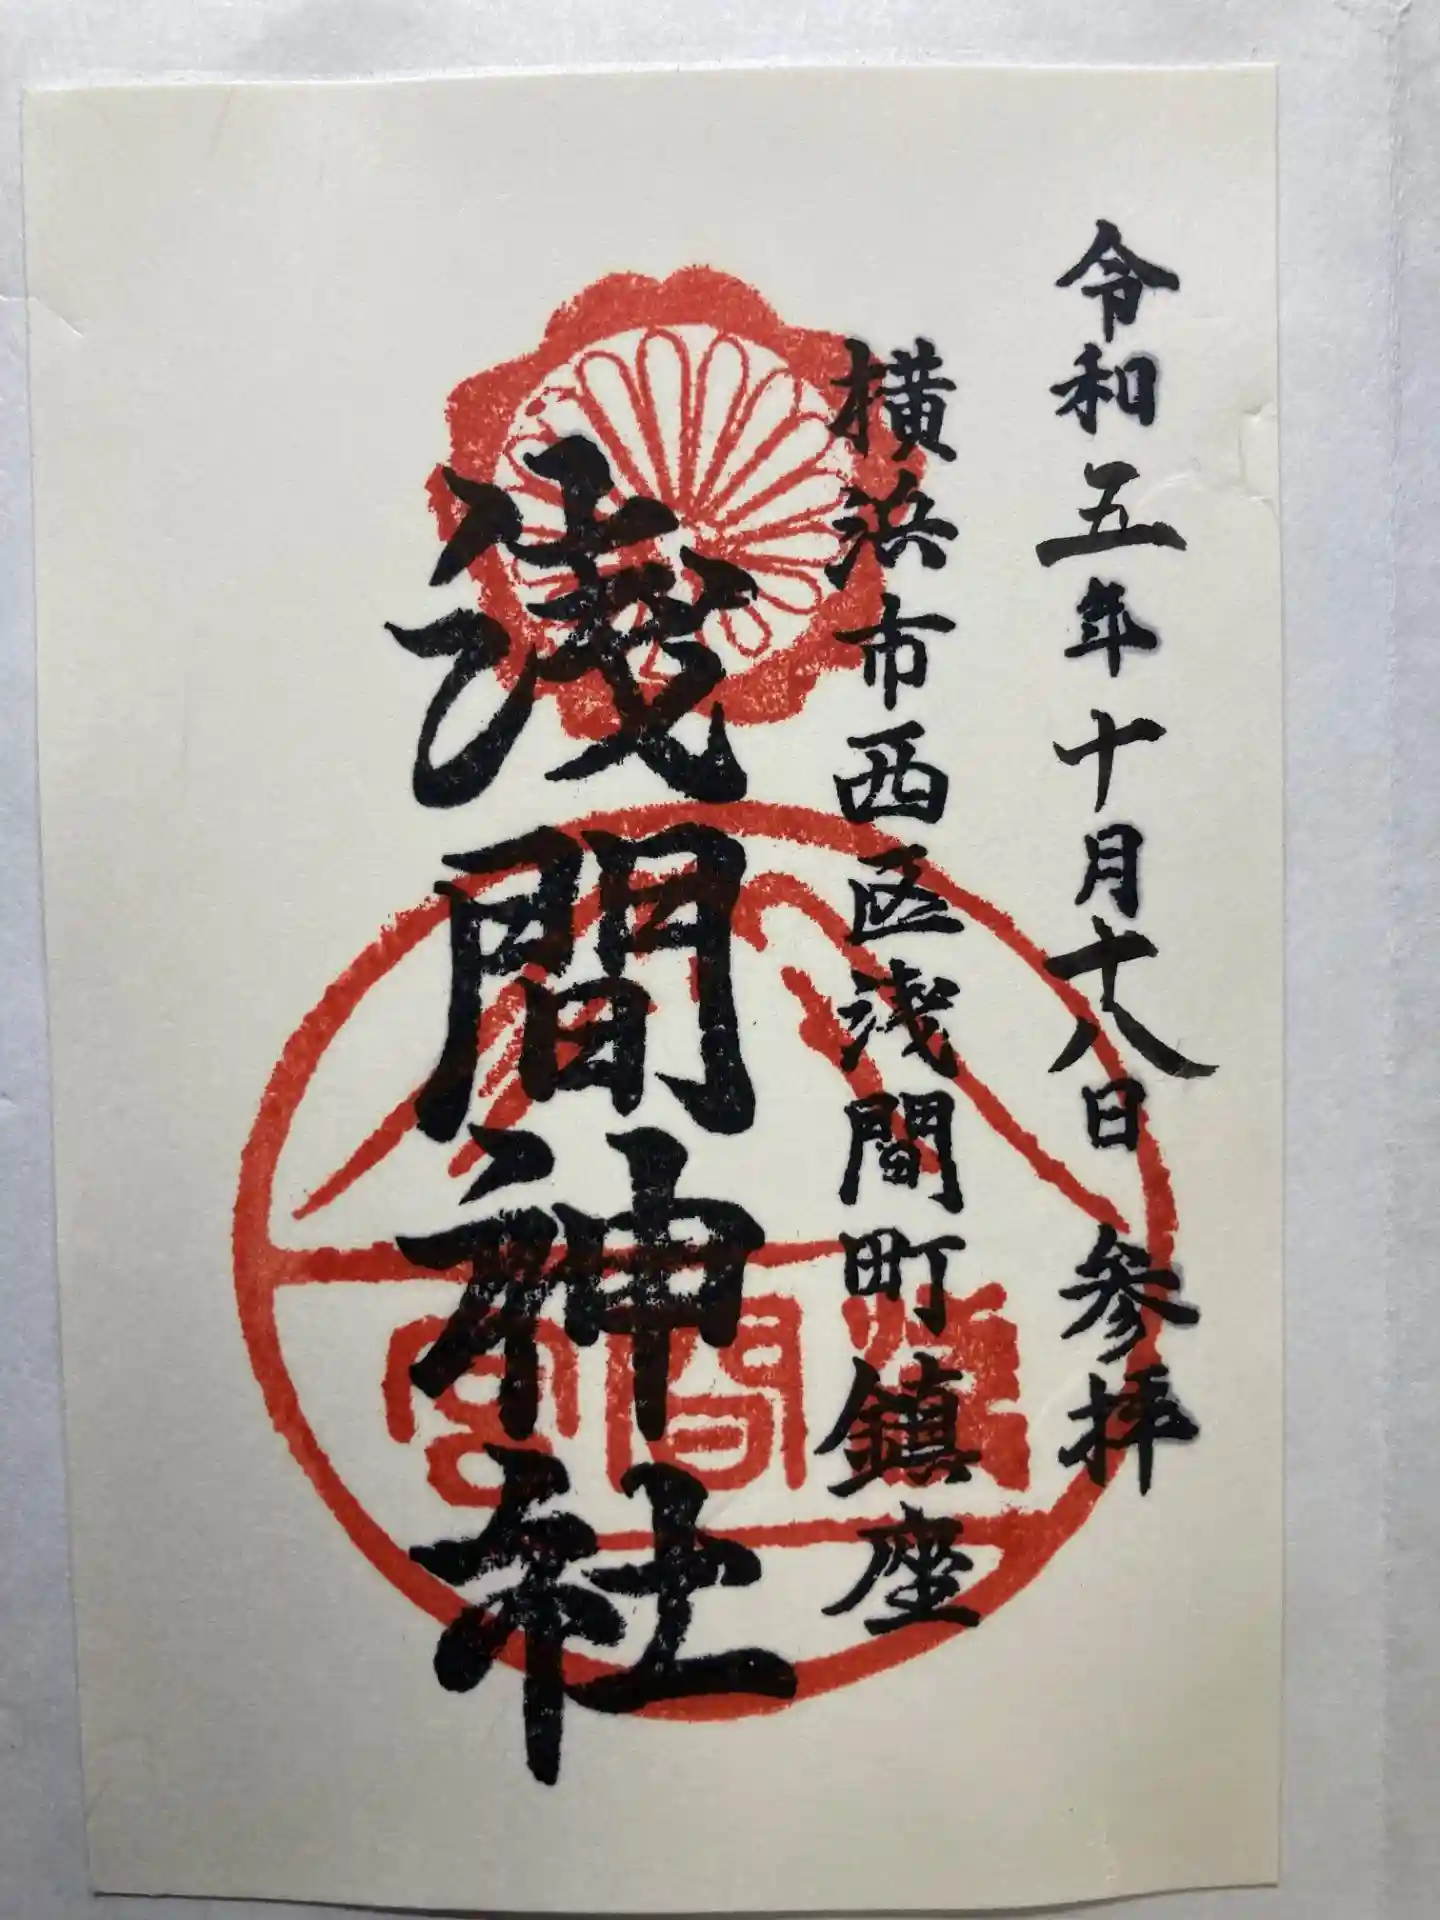 令和五年十月十八日 参拝
横浜市西区浅間町鎮座
浅間神社
浅間宮